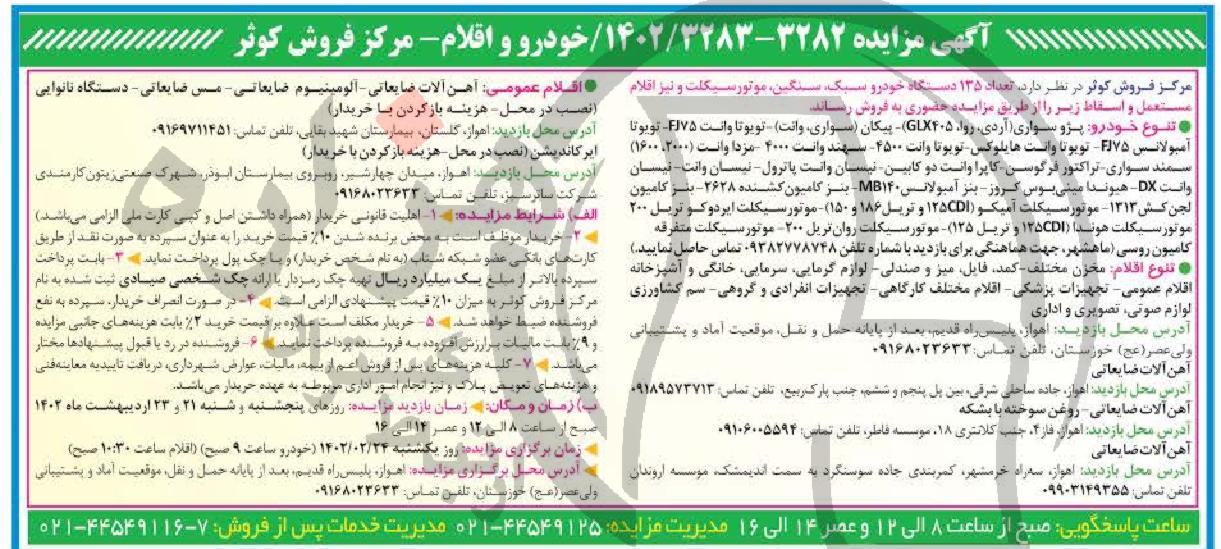 آگهی مزایده ۳۲۸۲-۱۴۰۲/۳۲۸۳/خودرو و اقلام- مرکز فروش کوثر
مرکز فروش کوثر در نظر دارد، تعداد ۱۳۵ دستگاه خودرو سبک، سنگین، موتورسیکلت و نیز اقلام
مستعمل و اسقاط زیر را از طریق مزایده حضوری به فروش رساند.
تنوع خودرو: پژو سواری (آردی، روا، GLX۴۰۵)- پیکان (سواری، وانت)- تویوتا وانت FJ۷۵- تویوتا
آمبولانس FJ۷۵- تویوتا وانت هایلوکس- تویوتا وانت ۴۵۰۰- سهند وانت ۴۰۰۰- مزدا وانت (۲۰۰۰، ۱۶۰۰)
سمند سواری- تراکتور فرگوسن- کاپرا وانت دو کابین- نیسان وانت پاترول- نیسان وانت- نیسان
وانت DX- هیوندا مینی‌بوس کروز- بنز آمبولانس MB۱۴۰- بنز کامیون کشنده ۲۶۲۸- بنز کامیون
لجن کش ۱۲۱۳- موتورسیکلت آمیکو (۱۲۵CDI و تریل ۱۸۶ و ۱۵۰)- موتورسیکلت ایردوکو تریل ۲۰۰
موتورسیکلت هوندا (۱۲۵CDI و تریل ۱۲۵)- موتورسیکلت روان تریل ۲۰۰- موتورسیکلت متفرقه
کامیون روسی (ماهشهر، جهت هماهنگی برای بازدید با شماره تلفن ۰۹۳۸۲۷۷۸۷۴۸ تماس حاصل نمایید.)
تنوع اقلام: مخزن مختلف- کمد، فایل، میز و صندلی- لوازم گرمایی، سرمایی، خانگی و آشپزخانه
اقلام عمومی- تجهیزات پزشکی- اقلام مختلف کارگاهی- تجهیزات انفرادی و گروهی- سم کشاورزی
لوازم صوتی، تصویری و اداری
آدرس محل بازدید: اهواز، پلیس‌راه قدیم، بعد از پایانه حمل و نقل، موقعیت آماد و پشتیبانی
ولی‌عصر(عج) خوزستان، تلفن تماس: ۰۹۱۶۸۰۲۳۶۳۳
آهن‌آلات ضایعاتی
آدرس محل بازدید: اهواز، جاده ساحلی شرقی، بین پل پنجم و ششم، جنب پارک ربیع، تلفن تماس: ۰۹۱۸۹۵۷۳۷۱۳
آهن‌آلات ضایعاتی- روغن سوخته با بشکه
آدرس محل بازدید: اهواز، فاز۴، جنب کلانتری ۱۸، موسسه فاطر، تلفن تماس: ۰۹۱۰۶۰۰۵۵۹۴
آهن‌آلات ضایعاتی
آدرس محل بازدید: اهواز، سه‌راه خرمشهر، کمربندی جاده سوسنگرد به سمت اندیمشک، موسسه اروندان
تلفن تماس: ۰۹۹۰۳۱۴۹۳۵۵
اقلام عمومی: آهن آلات ضایعاتی- آلومینیوم ضایعاتی- مس ضایعاتی- دستگاه نانوایی
(نصب در محل- هزینه بازکردن با خریدار)
آدرس محل بازدید: اهواز، گلستان، بیمارستان شهید بقایی، تلفن تماس: ۰۹۱۶۹۷۱۱۴۵۱
ایرکاندیشن (نصب در محل-هزینه بازکردن با خریدار)
آدرس محل بازدید: اهواز، میدان چهارشیر، روبروی بیمارستان ابوذر، شهرک صنعتی زیتون کارمندی
شرکت سانرسیز، تلفن تماس: ۰۹۱۶۸۰۲۳۶۳۳
الف) شرایط مزایده: ۱- اهلیت قانونی خریدار (همراه داشتن اصل و کپی کارت ملی الزامی می‌باشد.)
۲- خریدار موظف است به محض برنده شدن ۱۰٪ قیمت خرید را به عنوان سپرده به صورت نقد از طریق
کارت‌های بانکی عضو شبکه شتاب (به نام شخص خریدار) و یا چک پول پرداخت نماید. ۳- بابت پرداخت
سپرده بالاتر از مبلغ یک میلیارد ریال تهیه چک رمزدار یا ارائه چک شخصی صیادی ثبت شده به نام
مرکز فروش کوثر به میزان ۱۰٪ قیمت پیشنهادی الزامی است. ۴- در صورت انصراف خریدار، سپرده به نفع
فروشنده ضبط خواهد شد. ۵- خریدار مکلف است علاوه بر قیمت خرید ۲٪ بابت هزینه‌های جانبی مزایده
و ۹٪ بابت مالیات بر ارزش افزوده به فروشنده پرداخت نماید. ۶- فروشنده در رد یا قبول پیشنهادها مختار
می‌باشد. ۷- کلیه هزینه‌های پس از فروش اعم از بیمه، مالیات، عوارض شهرداری، دریافت تاییدیه معاینه‌فنی
و هزینه‌های تعویض پلاک و نیز انجام امور اداری مربوطه به عهده خریدار می‌باشد.
ب) زمان و مکان: زمان بازدید مزایده: روزهای پنجشنبه و شنبه ۲۱ و ۲۳ اردیبهشت ماه ۱۴۰۲
صبح از ساعت ۸ الی ۱۲ و عصر ۱۴ الی ۱۶
زمان برگزاری مزایده: روز یکشنبه ۱۴۰۲/۰۲/۲۴ (خودرو ساعت ۹ صبح) (اقلام ساعت ۱۰:۳۰ صبح)
آدرس محل برگزاری مزایده: اهواز، پلیس‌راه قدیم، بعد از پایانه حمل و نقل، موقعیت آماد و پشتیبانی
ولی‌عصر(عج) خوزستان، تلفن تماس: ۰۹۱۶۸۰۲۳۶۳۳
ساعت پاسخگویی: صبح از ساعت ۸ الی ۱۲ و عصر ۱۴ الی ۱۶ مدیریت مزایده: ۴۴۵۴۹۱۲۵-۰۲۱ مدیریت خدمات پس از فروش: ۷-۴۴۵۴۹۱۱۶-۰۲۱